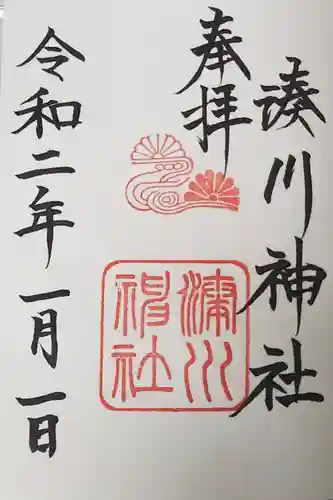 奉拝
湊川神社
湊川神社
令和二年一月一日